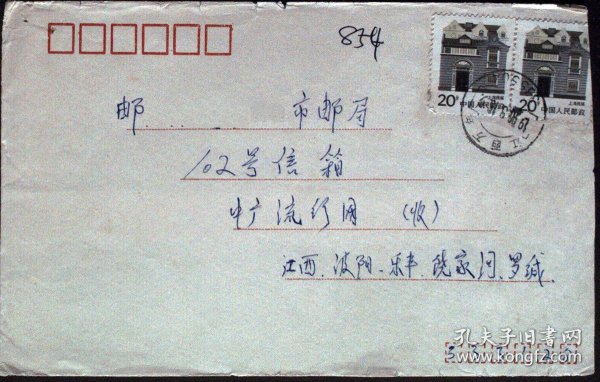 854
20分 中国人民邮政 上海民居
20分 中国人民邮政 上海民居
江西
邮 市邮局
102号信箱
中广流行网 (收)
江西.波阳-乐丰.饶家河.罗城
孔夫子旧书网
www.kongfz.com